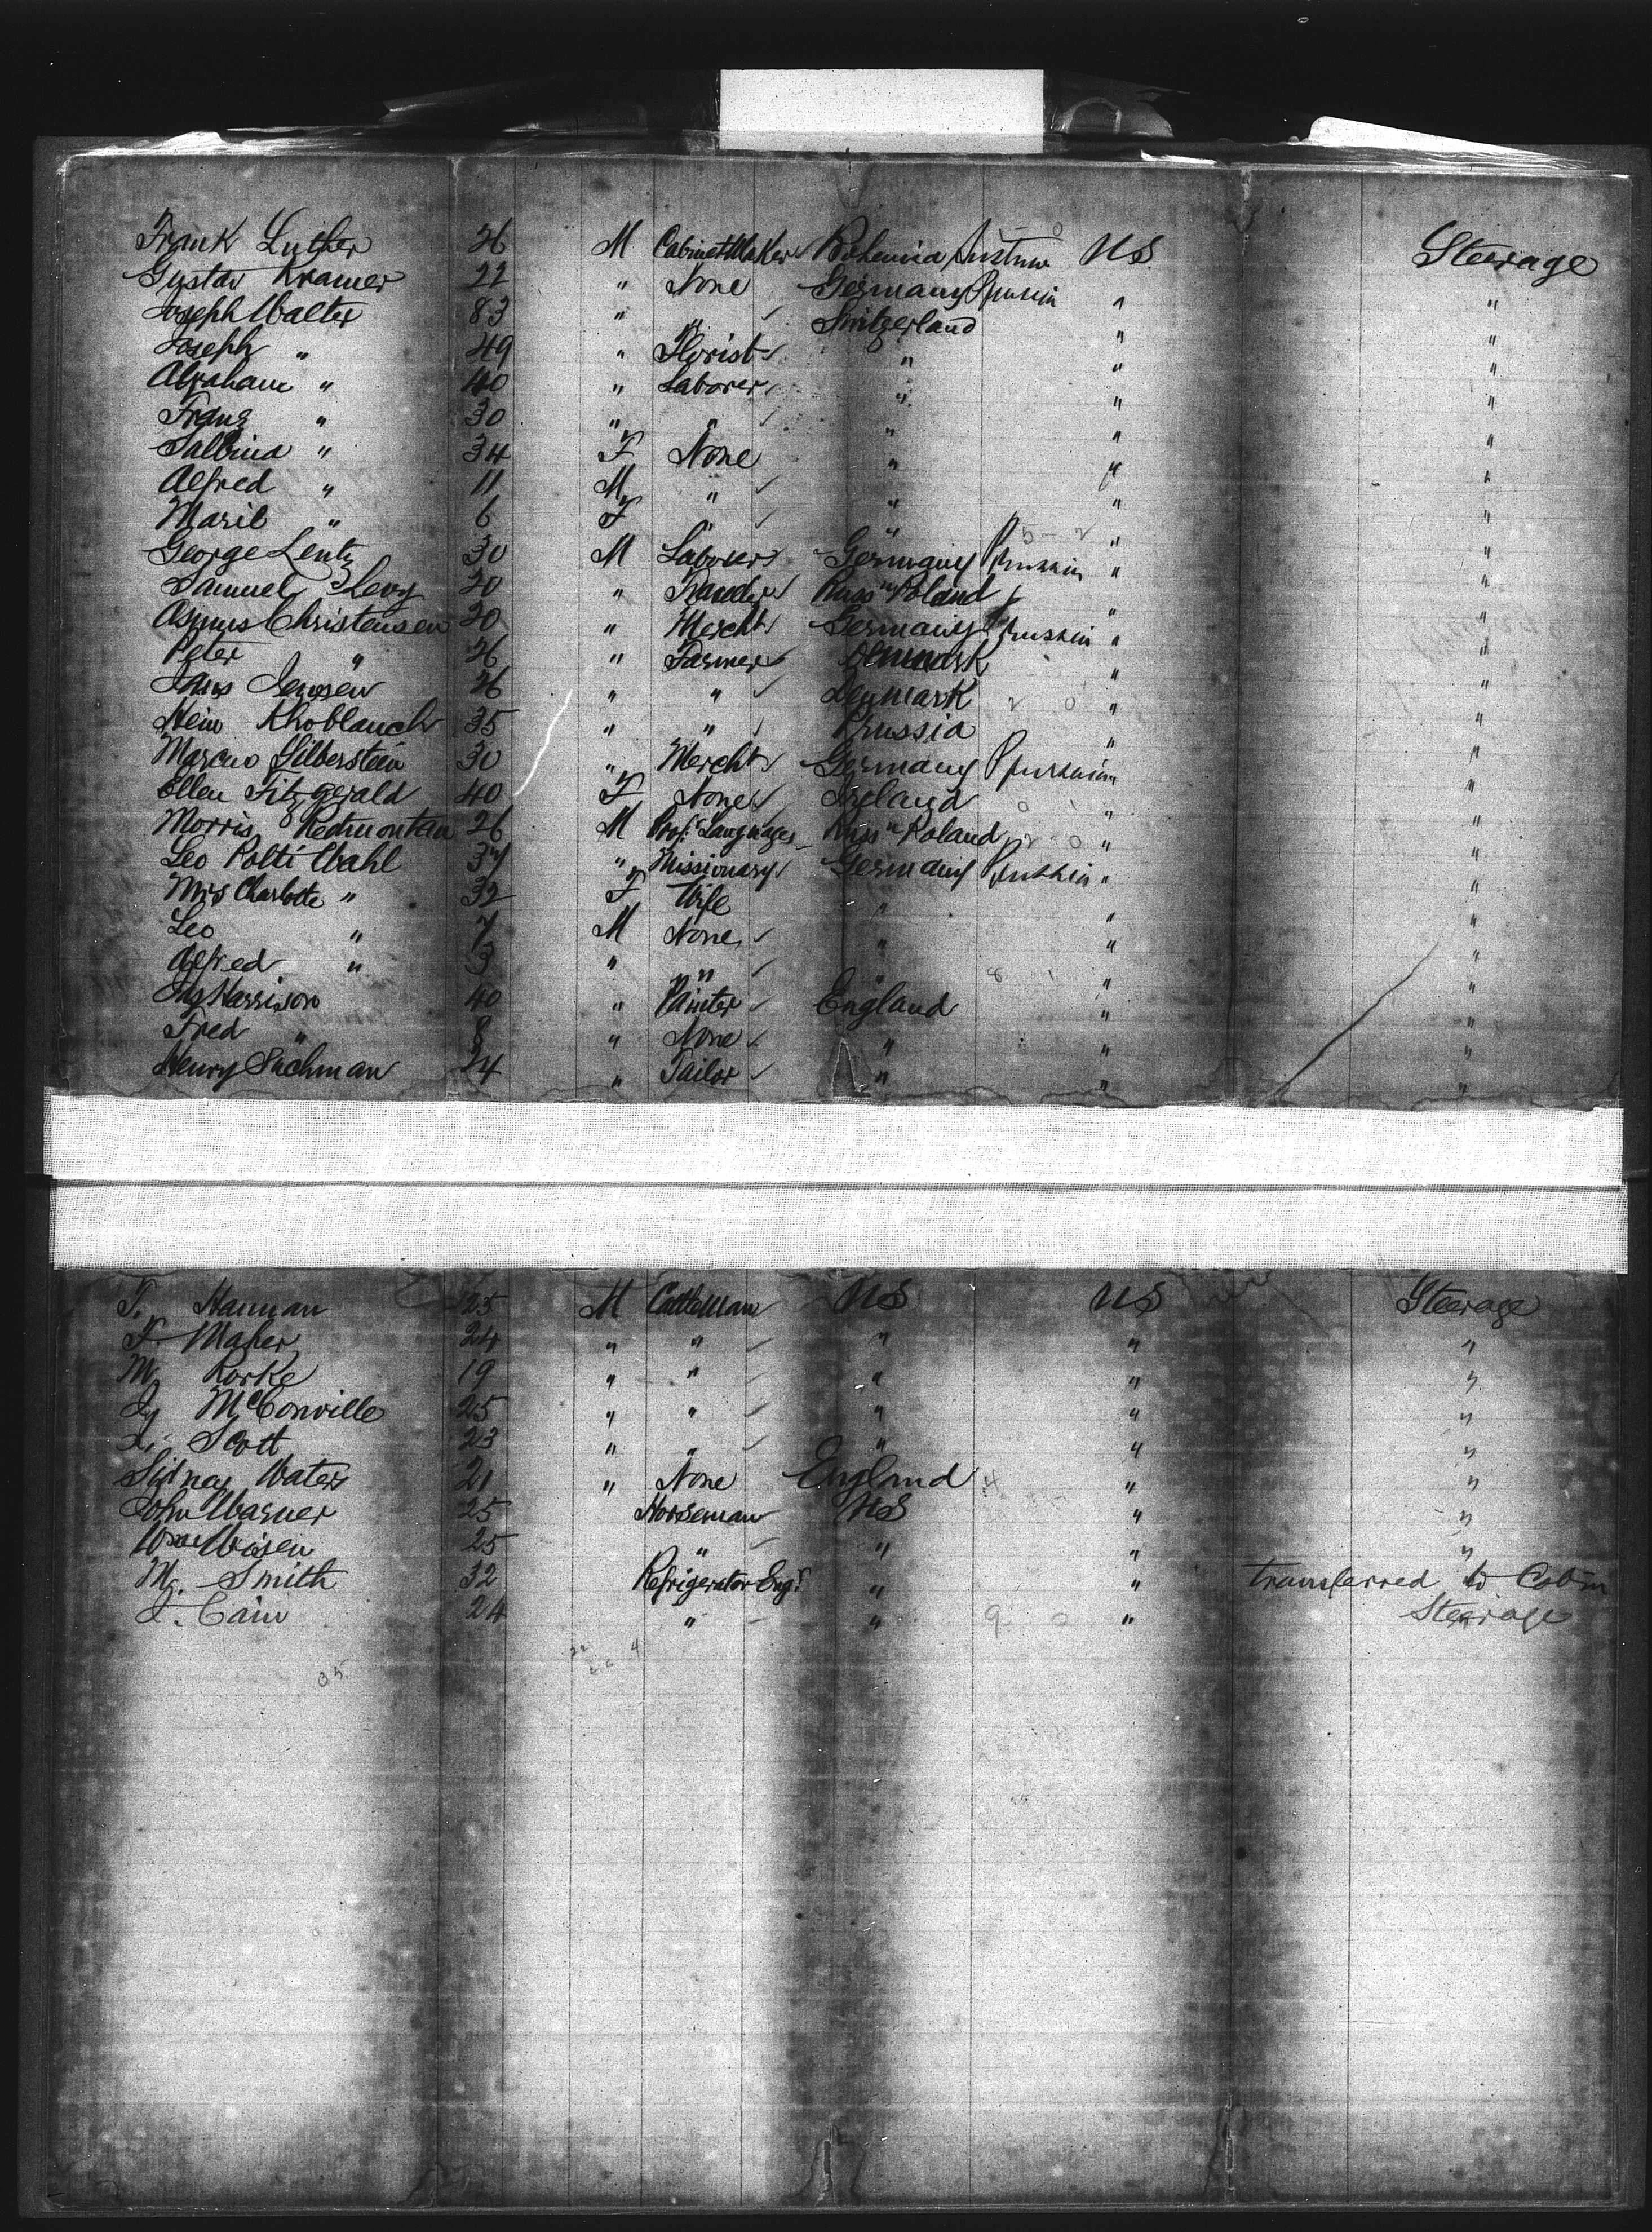 Frank Luther 26 M Cabinet Maker Bohemia Austria US Steerage
Gustav Kramer 22 " None Germany Prussia " "
Joseph Walter 83 " " Switzerland " "
Joseph " 49 " Florist " " "
Abraham " 40 " Laborer " " "
Franz " 30 " " " " "
Salbina " 34 F None " " "
Alfred " 11 M " " " "
Marie " 6 F " " "
George Lentz 30 M Laborer Germany Prussia " "
Samuel Levy 20 " Russn Poland " "
Asmus Christensen 20 " Mercht Germany Prussia " "
Peter " 26 " Farmer Denmark " "
Jans Jensen 26 " " Denmark " "
Hein Knoblauch 35 " " Prussia " "
Marcus Silberstein 30 " Mercht Germany Prussian " "
Ellen Fitzgerald 40 F None Ireland " "
Morris Redmontan 26 M Prof. Languages Russn Poland " "
Leo Polti Wahl 37 " Missionary Germany Prussia " "
Mrs Charlotte " 32 F Wife " " "
Leo " 7 M None " " "
Alfred " 3 " " " " "
Harrison 40 " Painter England " "
Fred " 8 " None " " "
Henry Sachman 24 " Tailor " " "
T. Hannan 25 M Cattleman US US Steerage
F. Maher 24 " " " " "
M. Rorke 19 " " " " "
McConville 25 " " " " "
Scott 23 " " " " "
Sidney Waters 21 " None England " "
John Warner 25 Horseman US " "
Wm Wisen 25 " " " "
M. Smith 32 Refrigerator Engr " " transferred to Cabin
J. Cain 24 " " 9 0 " Steerage
35